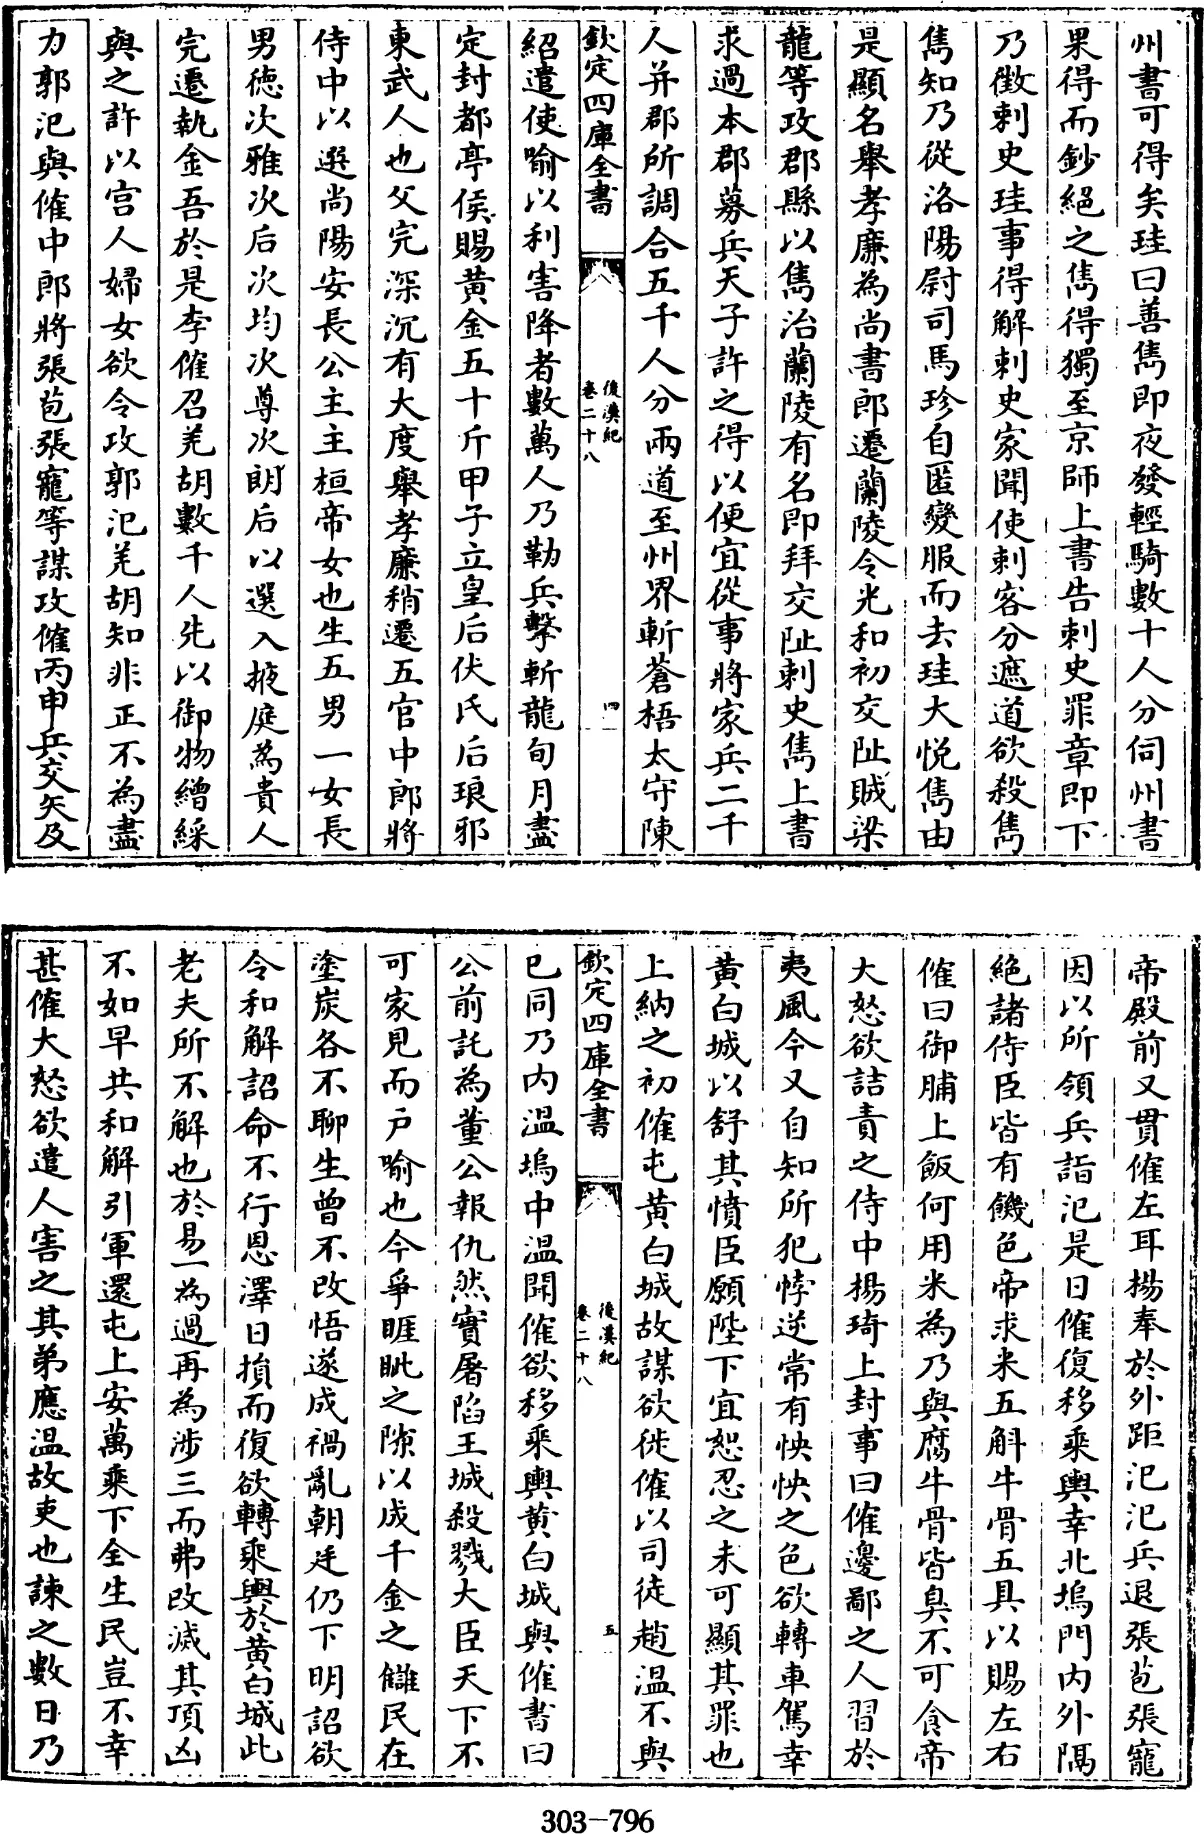 州書可得矣珪曰善雋即夜發輕騎數十人分伺州書
果得而鈔絕之雋得獨至京師上書告刺史罪章即下
乃徵刺史珪事得解刺史家聞使刺客分遮道欲殺雋
雋知乃從洛陽尉司馬珍自匿變服而去珪大悅雋由
是顯名舉孝廉為尚書郎遷蘭陵令光和初交阯賊梁
龍等攻郡縣以雋治蘭陵有名即拜交阯刺史雋上書
求過本郡募兵天子許之得以便宜從事將家兵二千
人并郡所調合五千人分兩道至州界斬蒼梧太守陳
欽定四庫全書
後漢紀
卷二十八
四
紹遣使喻以利害降者數萬人乃勒兵擊斬龍旬月盡
定封都亭侯賜黃金五十斤甲子立皇后伏氏后琅邪
東武人也父完深沉有大度舉孝廉稍遷五官中郎將
侍中以選尚陽安長公主主桓帝女也生五男一女長
男德次雅次后次均次尊次朗后以選入掖庭為貴人
完遷執金吾於是李傕召羌胡數千人先以御物繒綵
與之許以宫人婦女欲令攻郭汜羌胡知非正不為盡
力郭汜與傕中郎將張苞張寵等謀攻傕丙申兵交矢及
帝殿前又貫傕左耳楊奉於外距汜汜兵退張苞張寵
因以所領兵詣汜是日傕復移乘輿幸北塢門內外隔
絕諸侍臣皆有饑色帝求米五斛牛骨五具以賜左右
傕曰御脯上飯何用米為乃與腐牛骨皆臭不可食帝
大怒欲詰責之侍中楊琦上封事曰傕邊鄙之人習於
夷風今又自知所犯悖逆常有怏怏之色欲轉車駕幸
黃白城以舒其憤臣願陛下宜恕忍之未可顯其罪也
上納之初傕屯黃白城故謀欲徙傕以司徒趙溫不與
欽定四庫全書
後漢紀
卷二十八
五
已同乃內溫塢中溫聞傕欲移乘輿黃白城與傕書曰
公前託為董公報仇然實屠陷王城殺戮大臣天下不
可家見而戶喻也今爭睚眦之隙以成千金之讎民在
塗炭各不聊生曾不改悟遂成禍亂朝廷仍下明詔欲
令和解詔命不行恩澤日損而復欲轉乘輿於黃白城此
老夫所不解也於易一為過再為涉三而弗改滅其頂凶
不如早共和解引軍還屯上安萬乘下全生民豈不幸
甚傕大怒欲遣人害之其弟應溫故吏也諫之數日乃
303-796